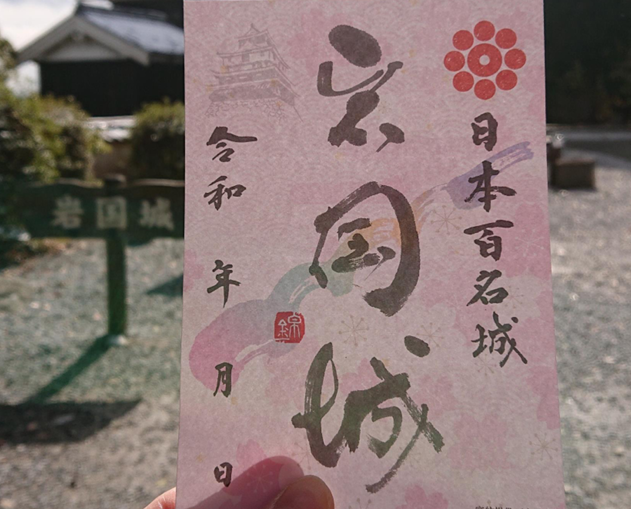 日本百名城
岩国城
令和 年 月 日
錦
岩国城